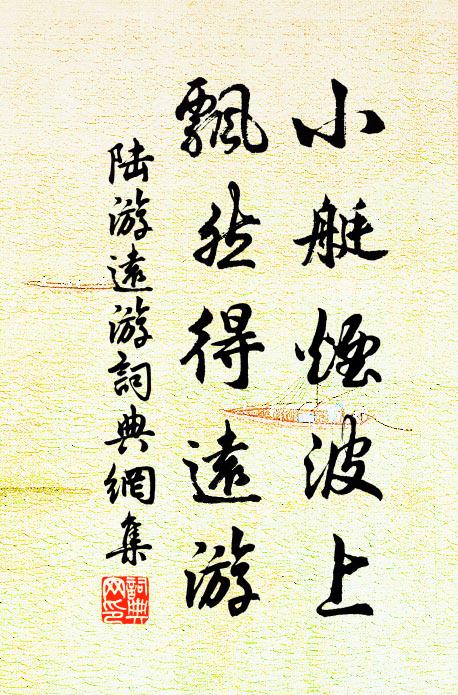 小艇煙波上
飄然得遠游
陸游遠游詞典網集
詞典
网印